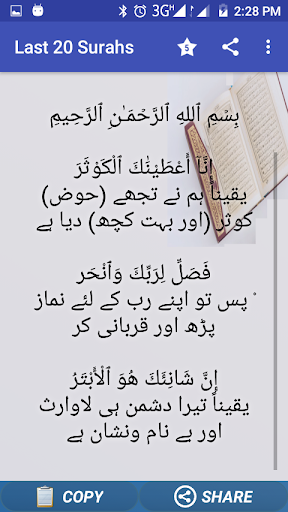 3G 2:28 PM
Last 20 Surahs
5
بِسْمِ ٱللهِ ٱلرَّحْمَـٰنِ ٱلرَّحِيمِ
إِنَّآ أَعْطَيْنَٰكَ ٱلْكَوْثَرَ
یقیناً ہم نے تجھے (حوض)
کوثر (اور بہت کچھ) دیا ہے
فَصَلِّ لِرَبِّكَ وَٱنْحَر
پس تو اپنے رب کے لئے نماز
پڑھ اور قربانی کر
إِنَّ شَانِئَكَ هُوَ ٱلْأَبْتَرُ
یقیناً تیرا دشمن ہی لاوارث
اور بے نام ونشان ہے
COPY
SHARE